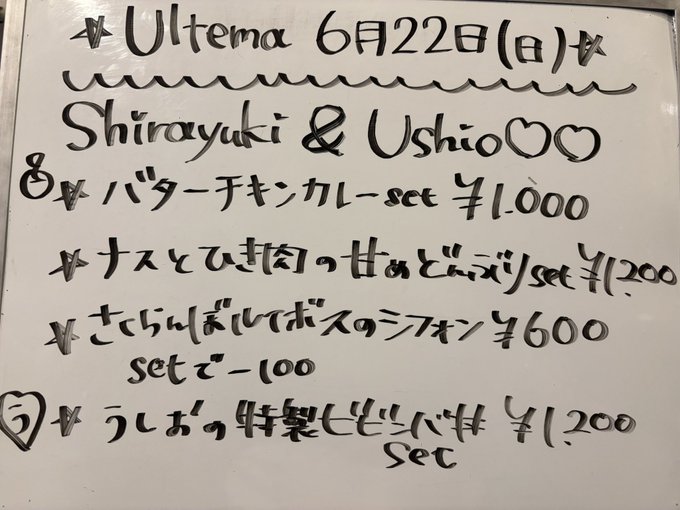 ☆ Ultema 6月22日(日)☆
Shirayuki & Ushio♡♡
☆ バターチキンカレーset ¥1.000
☆ ナスとひき肉の甘めどんぶりset ¥1.200
☆ さくらんぼルイボスのシフォン ¥600
setで-100
う ☆ うしおの特製ビビンバ丼 ¥1.200
set